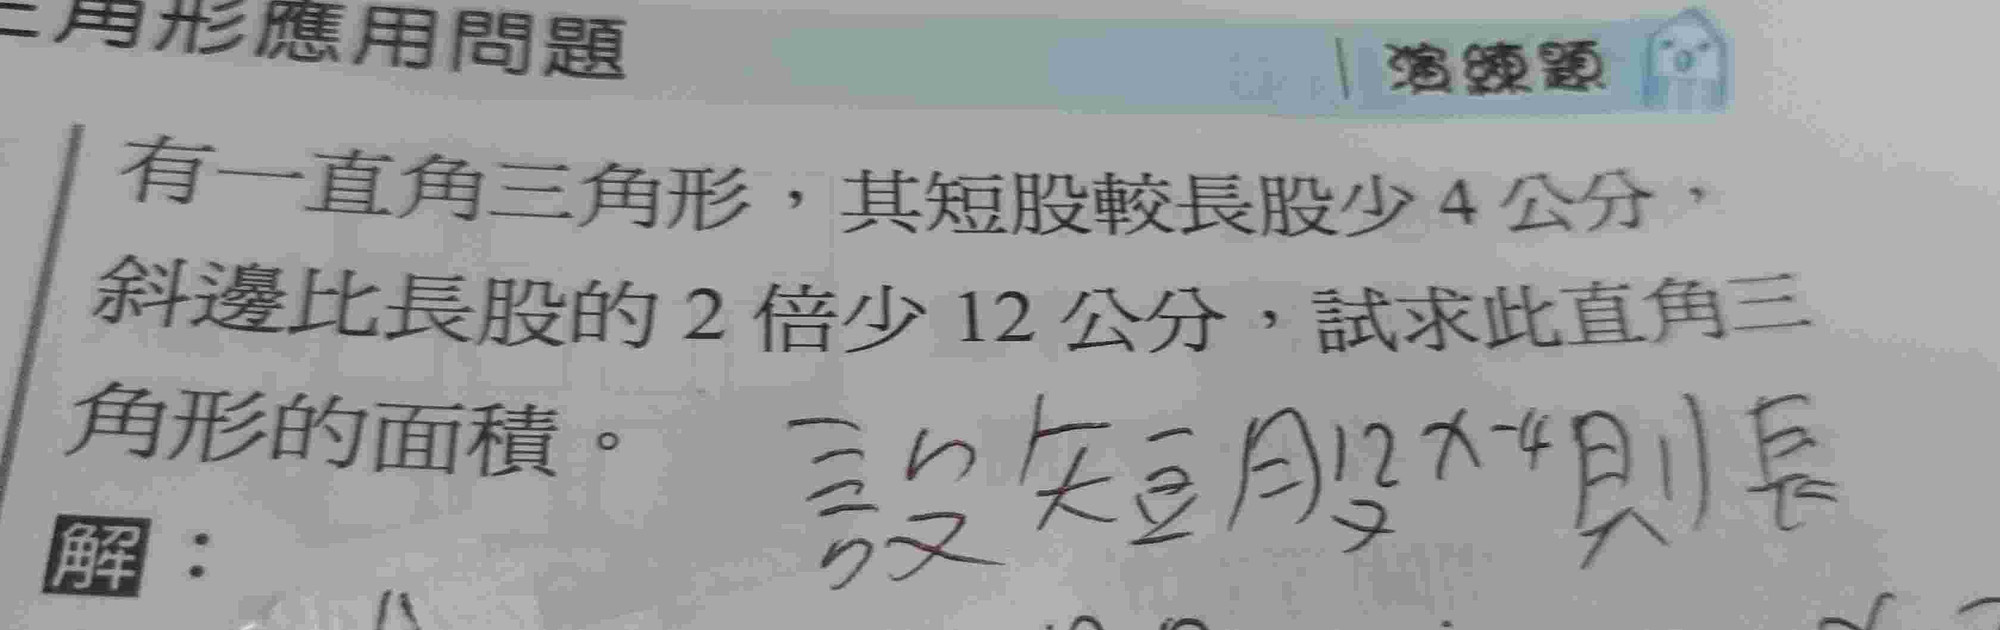 三角形應用問題
演練題
有一直角三角形，其短股較長股少 4 公分，
斜邊比長股的 2 倍少 12 公分，試求此直角三
角形的面積。
設短股x-4則長
解：